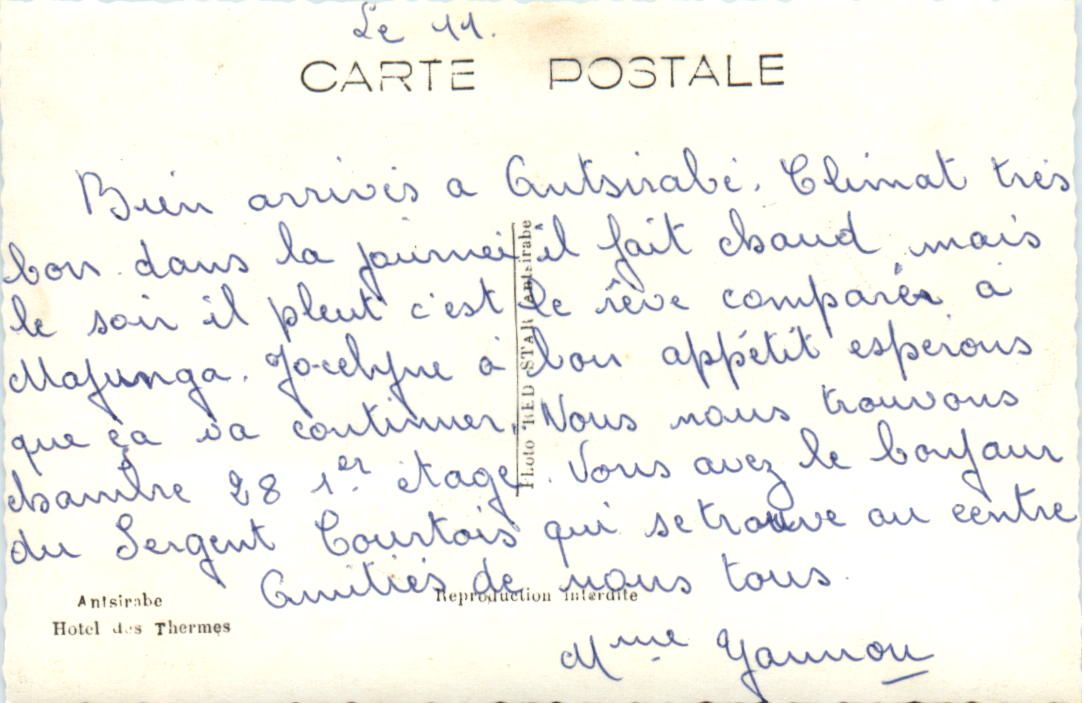 Le 11.
CARTE POSTALE
Bien arrivés a Antsirabé. Climat très
bon dans la journei il fait chaud mais
le soir il pleut c'est le rêve comparér a
Majunga. Jocelyne à bon appétit esperons
que ça va continuer. Nous nous trouvons
chambre 28 1er étage. Vous avez le bonjour
du Sergent Courtois qui se trouve au centre
Amitiés de nous tous.
Mme Yannou
Photo RED STAR Antsirabe
Antsirabe
Hotel des Thermes
Reproduction interdite